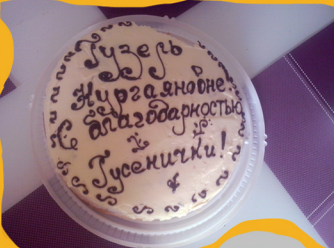 Гузель
Нургаяновне
С благодарностью
Гусенички!